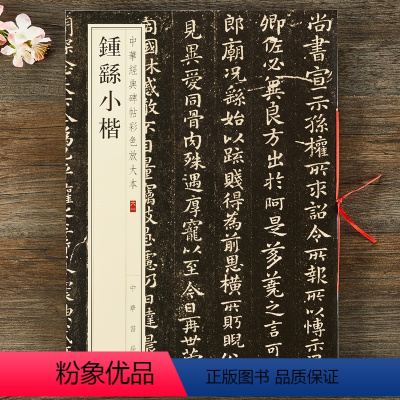 尚書宣示孫權所求詔令所報所以博示
卿佐必冀良方出於阿是芻蕘之
郎廟況繇始以疏賤得為前恩橫所盱睨
見異愛同骨肉殊遇厚寵以至今日再世
中華經典碑帖彩色放大本
鍾繇小楷
中華書局
同國休慼敢不自量竊致愚慮仍日達晨
粉象优品